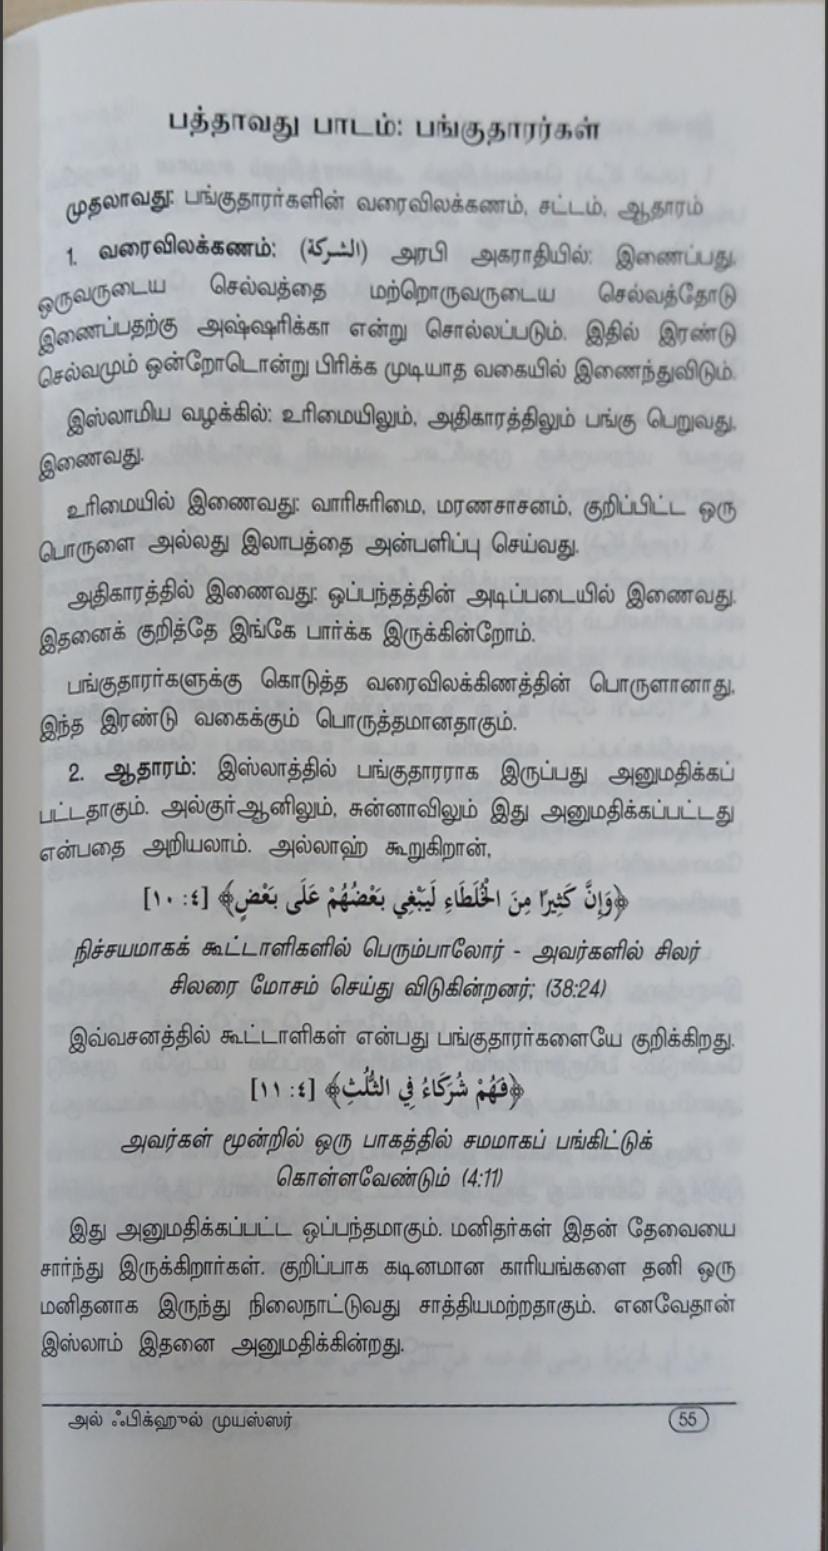 பத்தாவது பாடம்: பங்குதாரர்கள்
முதலாவது: பங்குதாரர்களின் வரைவிலக்கணம், சட்டம், ஆதாரம்
1. வரைவிலக்கணம்: (الشركة) அரபி அகராதியில்: இணைப்பது,
ஒருவருடைய செல்வத்தை மற்றொருவருடைய செல்வத்தோடு
இணைப்பதற்கு அஷ்ஷரிக்கா என்று சொல்லப்படும். இதில் இரண்டு
செல்வமும் ஒன்றோடொன்று பிரிக்க முடியாத வகையில் இணைந்துவிடும்.
இஸ்லாமிய வழக்கில்: உரிமையிலும், அதிகாரத்திலும் பங்கு பெறுவது,
இணைவது.
உரிமையில் இணைவது: வாரிசுரிமை, மரணசாசனம், குறிப்பிட்ட ஒரு
பொருளை அல்லது இலாபத்தை அன்பளிப்பு செய்வது.
அதிகாரத்தில் இணைவது: ஒப்பந்தத்தின் அடிப்படையில் இணைவது.
இதனைக் குறித்தே இங்கே பார்க்க இருக்கின்றோம்.
பங்குதாரர்களுக்கு கொடுத்த வரைவிலக்கிணத்தின் பொருளானாது,
இந்த இரண்டு வகைக்கும் பொருத்தமானதாகும்.
2. ஆதாரம்: இஸ்லாத்தில் பங்குதாரராக இருப்பது அனுமதிக்கப்
பட்டதாகும். அல்குர்ஆனிலும், சுன்னாவிலும் இது அனுமதிக்கப்பட்டது
என்பதை அறியலாம். அல்லாஹ் கூறுகிறான்,
﴿وَإِنَّ كَثِيرًا مِنَ الْخُلَطَاءِ لَيَبْغِي بَعْضُهُمْ عَلَى بَعْضٍ﴾ [٤ : ١٠]
நிச்சயமாகக் கூட்டாளிகளில் பெரும்பாலோர் - அவர்களில் சிலர்
சிலரை மோசம் செய்து விடுகின்றனர்; (38:24)
இவ்வசனத்தில் கூட்டாளிகள் என்பது பங்குதாரர்களையே குறிக்கிறது.
﴿فَهُمْ شُرَكَاءُ فِي الثُّلُثِ﴾ [٤ : ١١]
அவர்கள் மூன்றில் ஒரு பாகத்தில் சமமாகப் பங்கிட்டுக்
கொள்ளவேண்டும் (4:11)
இது அனுமதிக்கப்பட்ட ஒப்பந்தமாகும். மனிதர்கள் இதன் தேவையை
சார்ந்து இருக்கிறார்கள். குறிப்பாக கடினமான காரியங்களை தனி ஒரு
மனிதனாக இருந்து நிலைநாட்டுவது சாத்தியமற்றதாகும். எனவேதான்
இஸ்லாம் இதனை அனுமதிக்கின்றது.
அல் ஃபிக்ஹுல் முயஸ்ஸர்
55